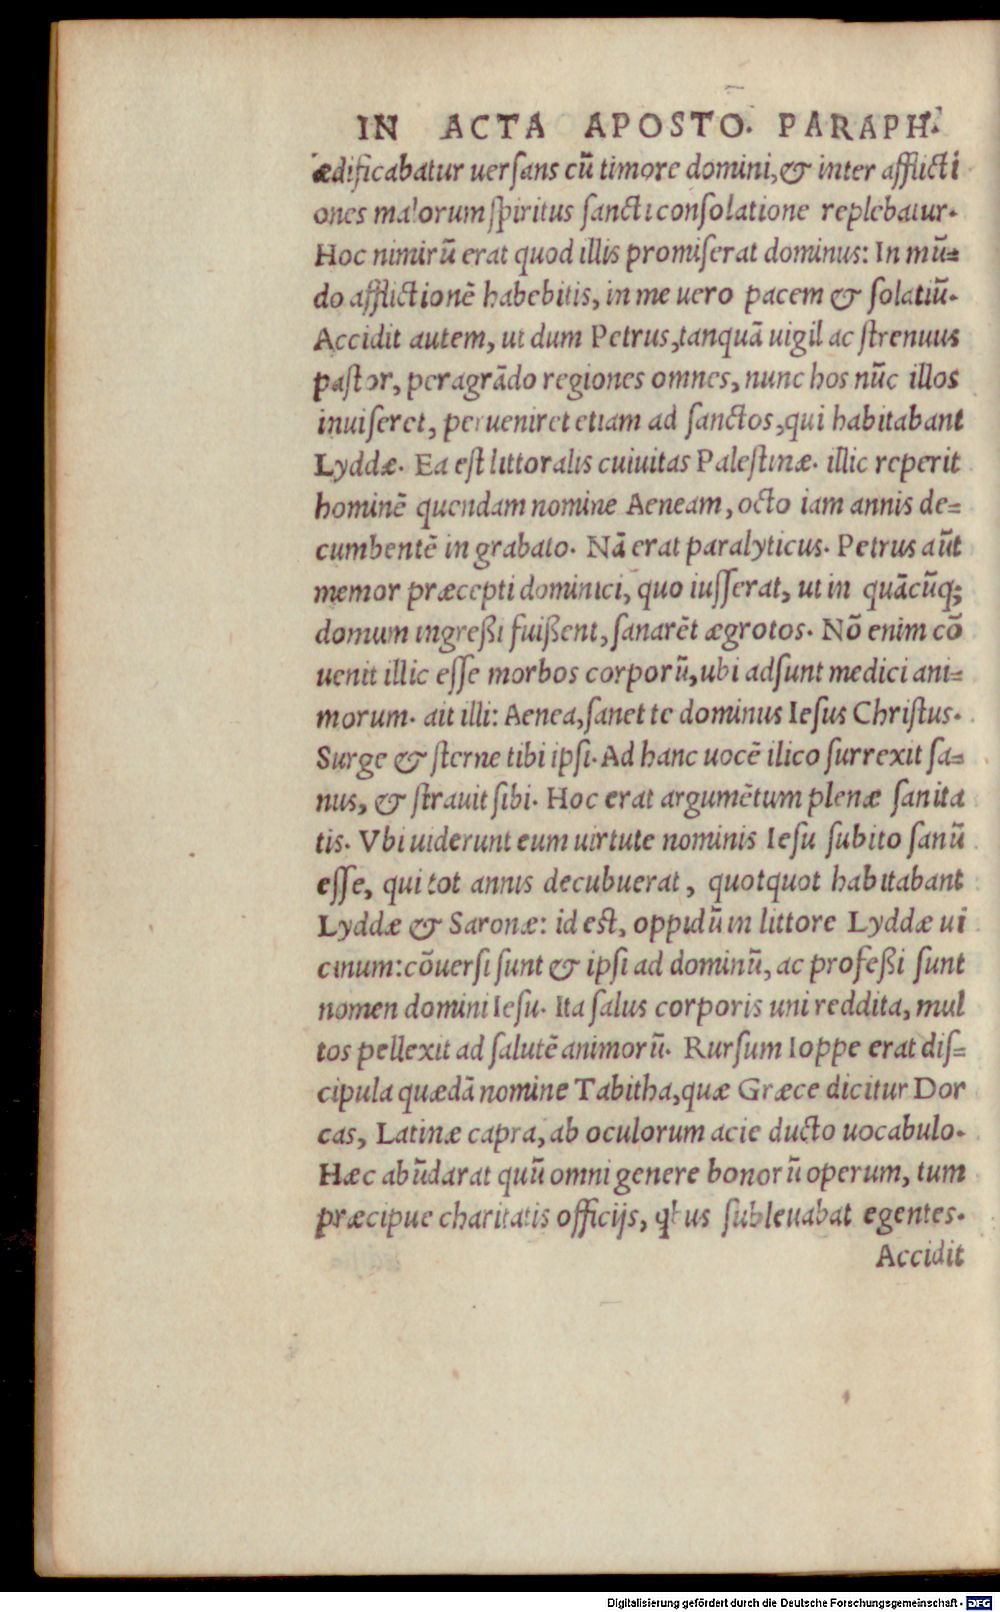 IN ACTA APOSTO. PARAPH.
ædificabatur uersans cũ timore domini, & inter afflicti
ones malorum spiritus sancti consolatione replebatur.
Hoc nimirũ erat quod illis promiserat dominus: In mũ=
do afflictionẽ habebitis, in me uero pacem & solatiũ.
Accidit autem, ut dum Petrus, tanquã uigil ac strenuus
pastor, peragrãdo regiones omnes, nunc hos nũc illos
inuiseret, perueniret etiam ad sanctos, qui habitabant
Lyddæ. Ea est littoralis cuiuitas Palestinæ. illic reperit
hominẽ quendam nomine Aeneam, octo iam annis de=
cumbentẽ in grabato. Nã erat paralyticus. Petrus aũt
memor præcepti dominici, quo iusserat, ut in quãcũq;
domum ingreßi fuißent, sanarẽt ægrotos. Nõ enim cõ
uenit illic esse morbos corporũ, ubi adsunt medici ani=
morum. ait illi: Aenea, sanet te dominus Iesus Christus.
Surge & sterne tibi ipsi. Ad hanc uocẽ ilico surrexit sa=
nus, & strauit sibi. Hoc erat argumẽtum plenæ sanita
tis. Vbi uiderunt eum uirtute nominis Iesu subito sanũ
esse, qui tot annis decubuerat, quotquot habitabant
Lyddæ & Saronæ: id est, oppidũ in littore Lyddæ ui
cinum: cõuersi sunt & ipsi ad dominũ, ac profeßi sunt
nomen domini Iesu. Ita salus corporis uni reddita, mul
tos pellexit ad salutẽ animorũ. Rursum Ioppe erat dis=
cipula quædã nomine Tabitha, quæ Græce dicitur Dor
cas, Latinæ capra, ab oculorum acie ducto uocabulo.
Hæc abũdarat quũ omni genere bonorũ operum, tum
præcipue charitatis officijs, qbus subleuabat egentes.
Accidit
Digitalisierung gefördert durch die Deutsche Forschungsgemeinschaft - DFG